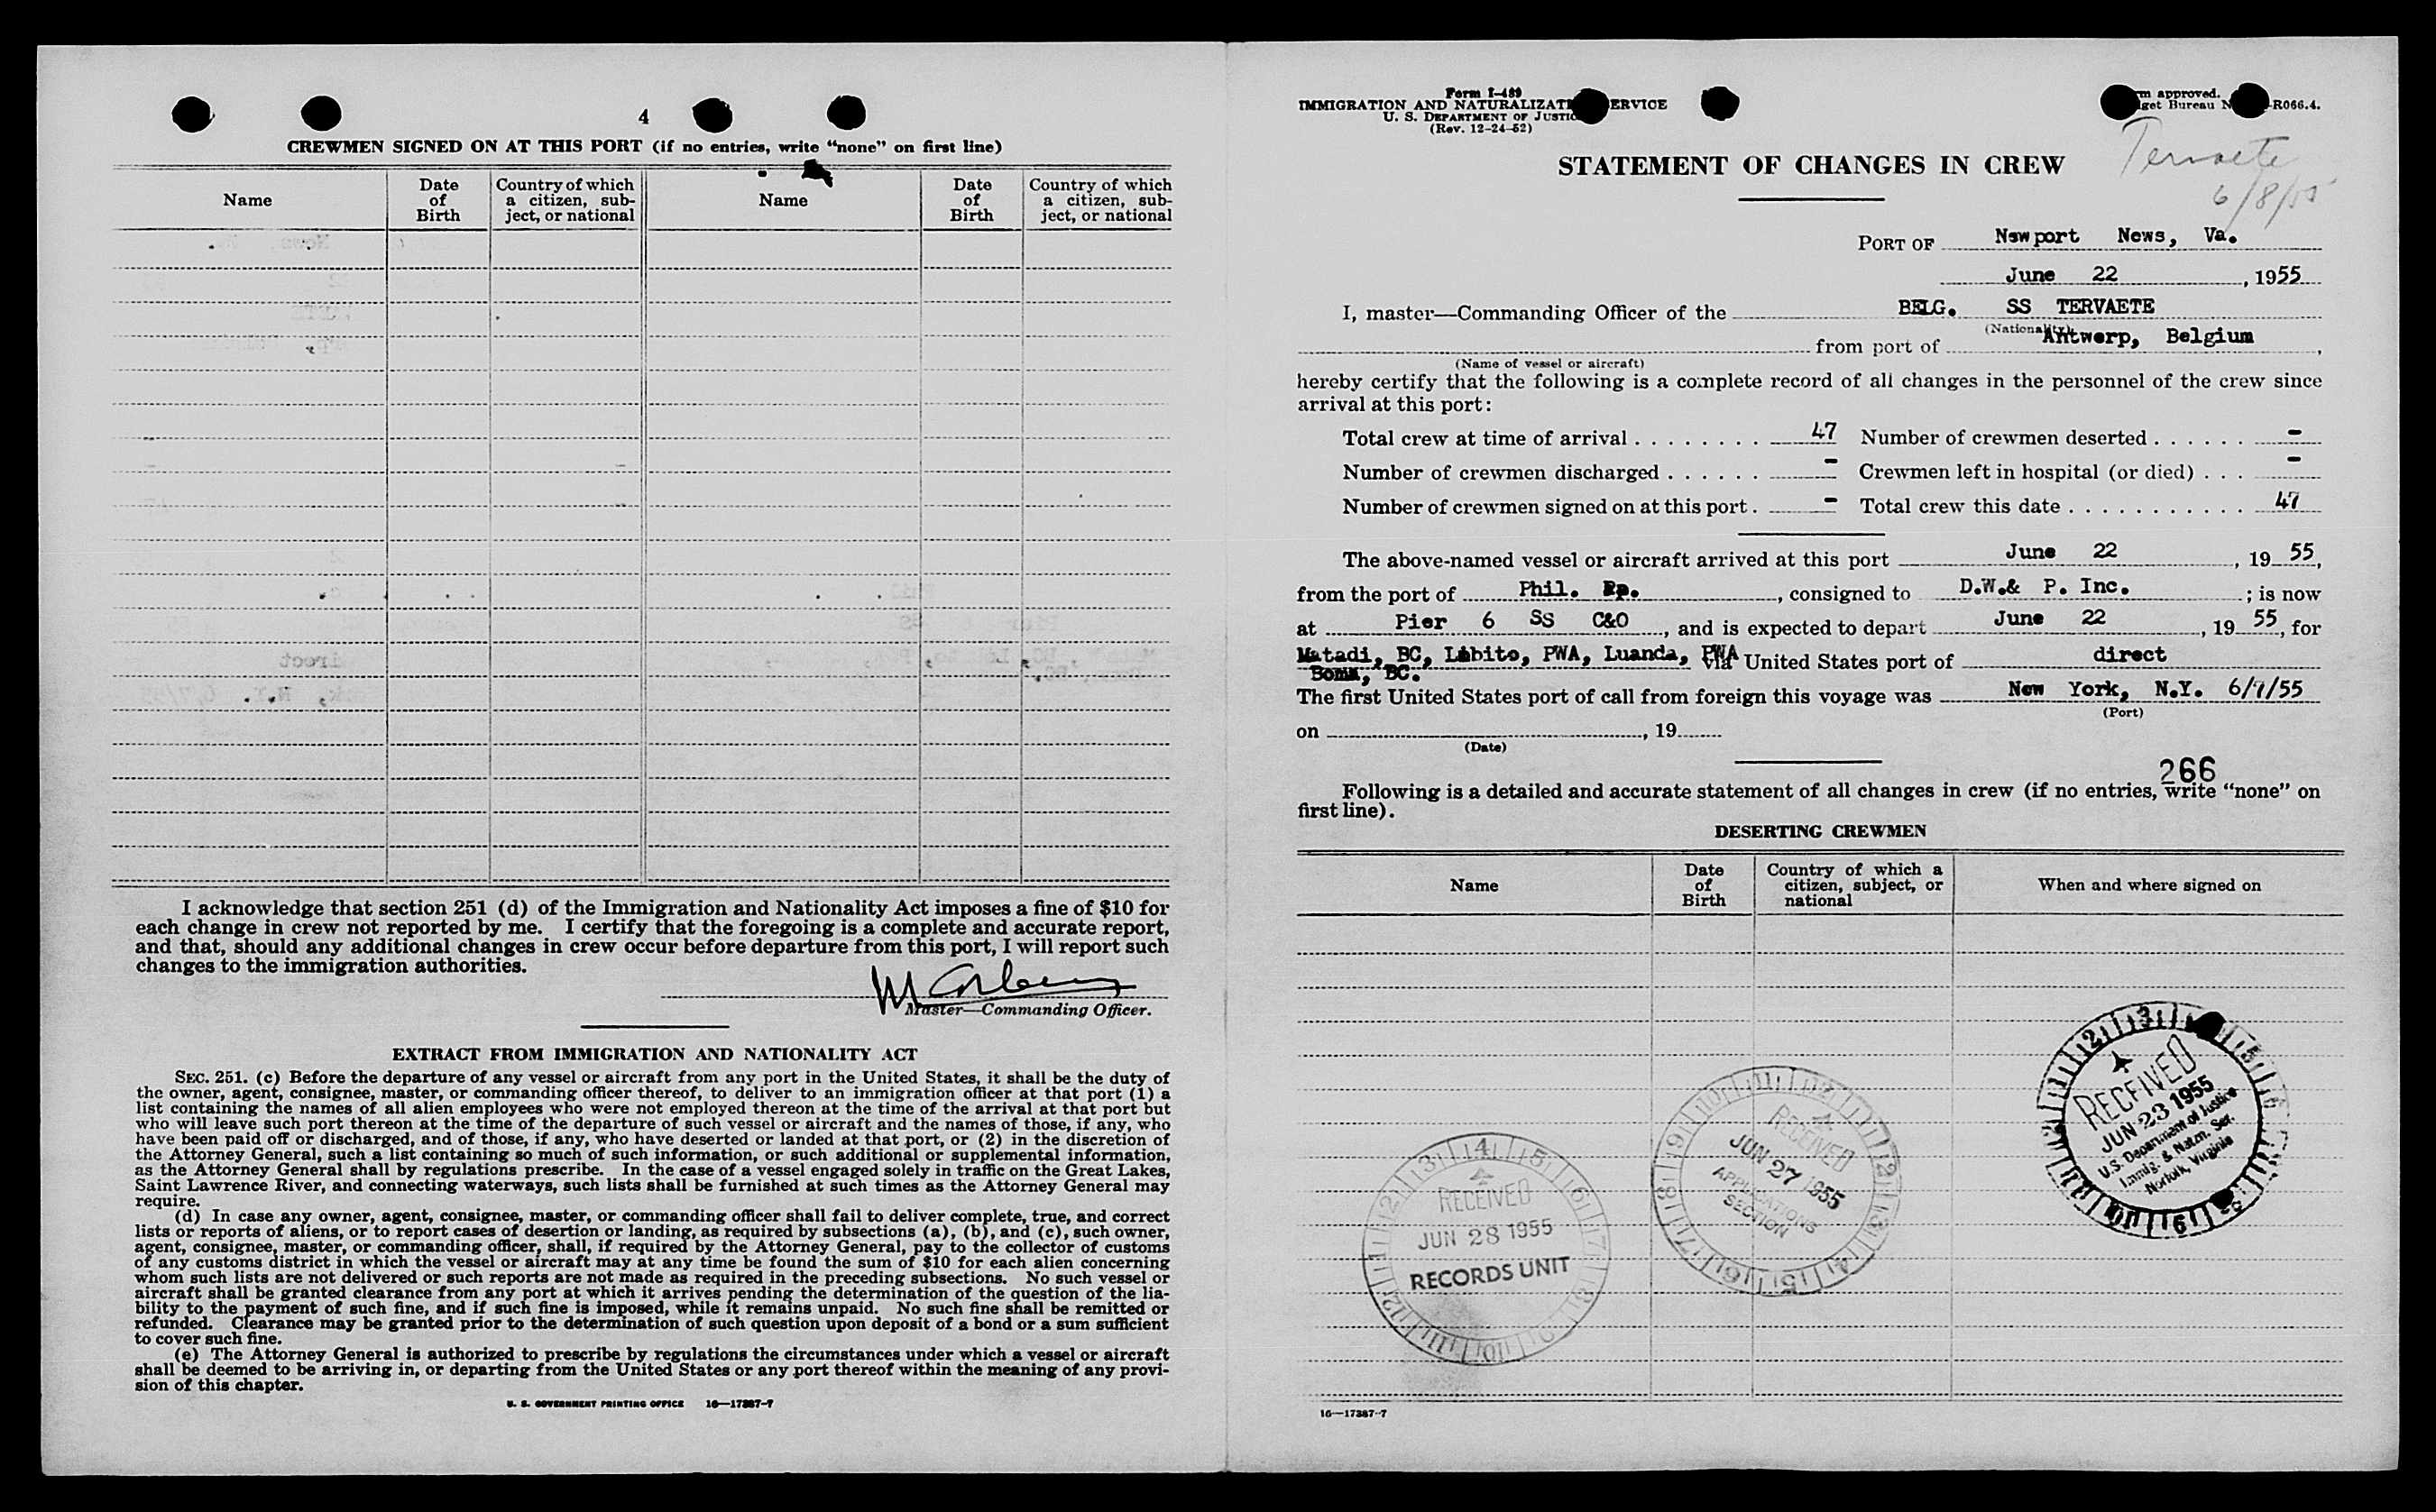 4
CREWMEN SIGNED ON AT THIS PORT (if no entries, write "none" on first line)
Name
Date of Birth
Country of which a citizen, sub-ject, or national
Name
Date of Birth
Country of which a citizen, sub-ject, or national
I acknowledge that section 251 (d) of the Immigration and Nationality Act imposes a fine of $10 for
each change in crew not reported by me. I certify that the foregoing is a complete and accurate report,
and that, should any additional changes in crew occur before departure from this port, I will report such
changes to the immigration authorities.
Master—Commanding Officer.
EXTRACT FROM IMMIGRATION AND NATIONALITY ACT
SEC. 251. (c) Before the departure of any vessel or aircraft from any port in the United States, it shall be the duty of
the owner, agent, consignee, master, or commanding officer thereof, to deliver to an immigration officer at that port (1) a
list containing the names of all alien employees who were not employed thereon at the time of the arrival at that port but
who will leave such port thereon at the time of the departure of such vessel or aircraft and the names of those, if any, who
have been paid off or discharged, and of those, if any, who have deserted or landed at that port, or (2) in the discretion of
the Attorney General, such a list containing so much of such information, or such additional or supplemental information,
as the Attorney General shall by regulations prescribe. In the case of a vessel engaged solely in traffic on the Great Lakes,
Saint Lawrence River, and connecting waterways, such lists shall be furnished at such times as the Attorney General may
require.
(d) In case any owner, agent, consignee, master, or commanding officer shall fail to deliver complete, true, and correct
lists or reports of aliens, or to report cases of desertion or landing, as required by subsections (a), (b), and (c), such owner,
agent, consignee, master, or commanding officer, shall, if required by the Attorney General, pay to the collector of customs
of any customs district in which the vessel or aircraft may at any time be found the sum of $10 for each alien concerning
whom such lists are not delivered or such reports are not made as required in the preceding subsections. No such vessel or
aircraft shall be granted clearance from any port at which it arrives pending the determination of the question of the lia-
bility to the payment of such fine, and if such fine is imposed, while it remains unpaid. No such fine shall be remitted or
refunded. Clearance may be granted prior to the determination of such question upon deposit of a bond or a sum sufficient
to cover such fine.
(e) The Attorney General is authorized to prescribe by regulations the circumstances under which a vessel or aircraft
shall be deemed to be arriving in, or departing from the United States or any port thereof within the meaning of any provi-
sion of this chapter.
U. S. GOVERNMENT PRINTING OFFICE 16—17387-7
Form I-489
IMMIGRATION AND NATURALIZATI ERVICE
U. S. DEPARTMENT OF JUSTIC
(Rev. 12-24-52)
m approved.
get Bureau N -R066.4.
Tervaete
6/8/55
STATEMENT OF CHANGES IN CREW
PORT OF Newport News, Va.
June 22, 1955
I, master—Commanding Officer of the BELG. SS TERVAETE
(Nationality)
from port of Antwerp, Belgium,
(Name of vessel or aircraft)
hereby certify that the following is a complete record of all changes in the personnel of the crew since
arrival at this port:
Total crew at time of arrival 47 Number of crewmen deserted -
Number of crewmen discharged - Crewmen left in hospital (or died) -
Number of crewmen signed on at this port - Total crew this date 47
The above-named vessel or aircraft arrived at this port June 22, 1955,
from the port of Phil. Pp., consigned to D.W.& P. Inc.; is now
at Pier 6 SS C&O, and is expected to depart June 22, 1955, for
Matadi, BC, Lobito, PWA, Luanda, PWA via United States port of direct
Boma, BC.
The first United States port of call from foreign this voyage was New York, N.Y. 6/7/55
(Port)
on , 19
(Date)
266
Following is a detailed and accurate statement of all changes in crew (if no entries, write "none" on
first line).
DESERTING CREWMEN
Name
Date of Birth
Country of which a citizen, subject, or national
When and where signed on
RECEIVED
JUN 23 1955
U.S. Department of Justice
Immig. & Natzn. Ser.
Norfolk, Virginia
RECEIVED
JUN 27 1955
APPLICATIONS
SECTION
RECEIVED
JUN 28 1955
RECORDS UNIT
16—17387-7